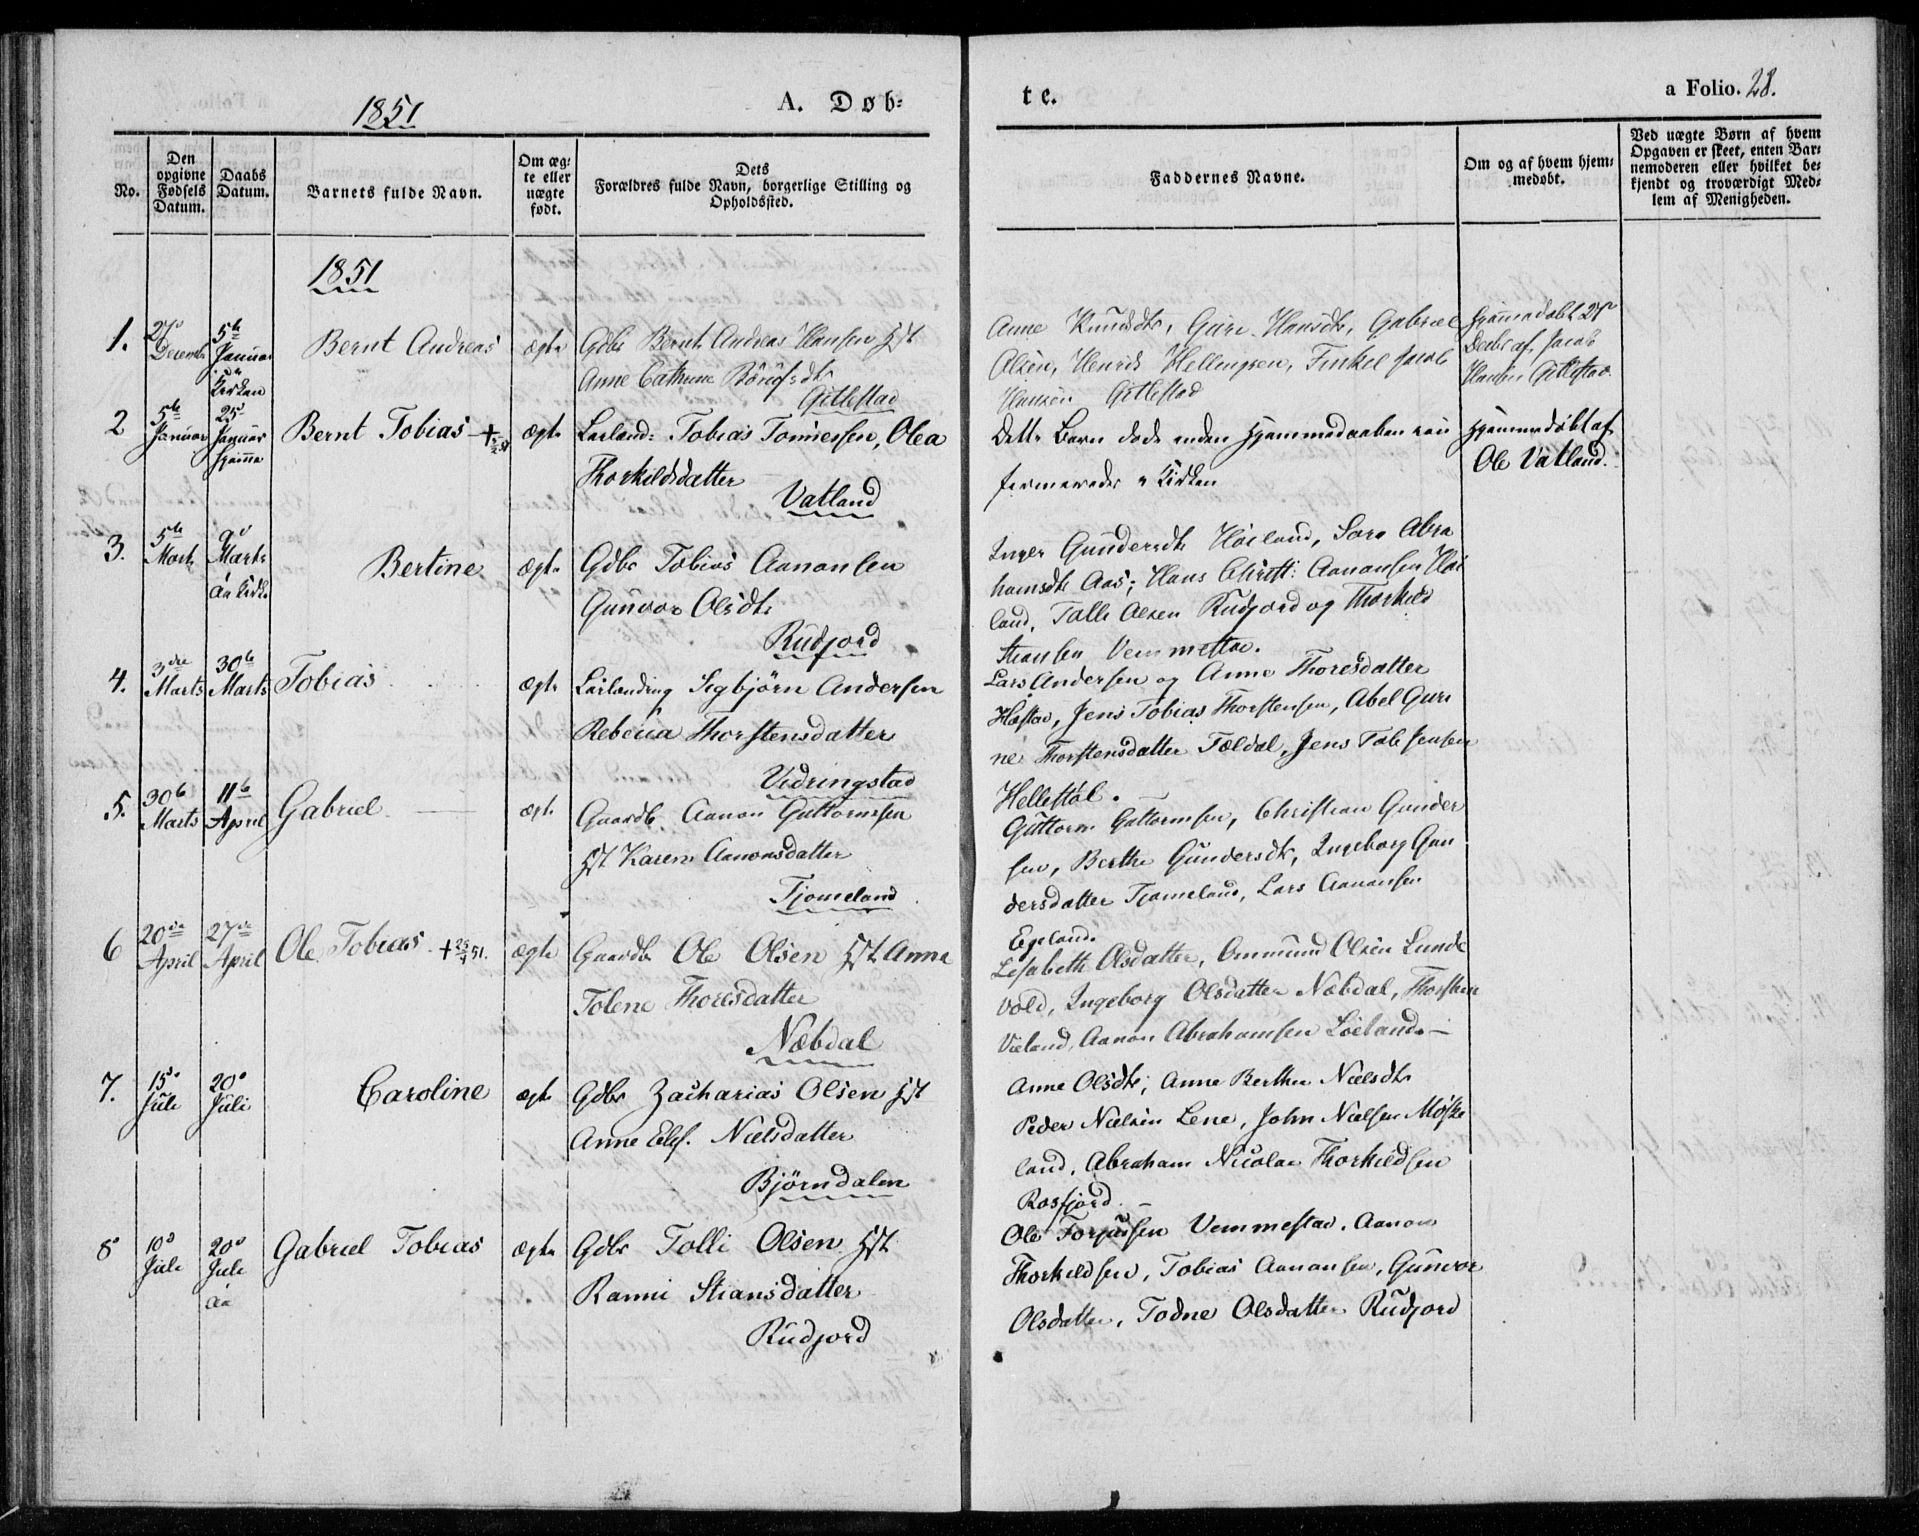 1851
A. Døb=
te.
a Folio. 28.
No.
Den opgivne Fødsels Datum.
Daabs Datum.
Barnets fulde Navn.
Om æg=te eller nægte født.
Dets
Forældres fulde Navn, borgerlige Stilling og
Opholdssted.
Faddernes Navne.
Om og af hvem hjem=
medøbt.
Ved uægte Børn af hvem
Opgaven er skeet, enten Bar=
nemoderen eller hvilket be=
kjendt og troværdigt Med=
lem af Menigheden.
1851
1.
27de Decemb
5te Januar
i Kirken
Bernt Andreas
ægte
Gdbr Bernt Andreas Hansen Hst
Anne Cathrine
Gitlestad
Anne Knudsdtr, Guri Hansdtr, Gabriel
Olsen, Henrik Hellingsen, Jacob
Hansen Gitlestad
Hjemmedøbt 27
Decbr af Jacob
Hansen Gitlestad
2
5te Januar
25 Januar
hjemme
Bernt Tobias +
ægte
Tobias Tønnessen, Olea
Thorkildsdatter
Vatland
Dette Barn døde inden Hjemmedaaben con
firmeredes i Kirken
Hjemmedøbt af
Ole Vatland.
3.
5te Marts
9de Marts
Aa Kirke
Bertine
ægte
Gdbr Tobias Aanonsen
Gunvor Olsdtr
Rudjord
Inger Gundersdtr Høiland, Sara Abra
hamsdtr Aas; Hans Christ: Aanonsen Høi
land, Tolli Olsen Rudjord og Thorkild
Stiansen Vemmestad.
4.
3die Marts
30te Marts
Tobias
ægte
Sigbjørn Andersen
Rebecca Thorstensdatter
Vidringstad
Lars Andersen og Anne Thoresdatter
Hæstad, Jens Tobias Thorstensen, Abel Guri
ne Thorstensdatter Foldal, Jens Tob: Jensen
Hellestøl.
5.
30te Marts
11te April
Gabriel
ægte
Gaardb. Aanon Guttormsen
Hst Karen Aanonsdatter
Tjomeland
Guttorm Guttormsen, Christian Gunder
sen, Berthe Gundersdtr, Ingeborg Gun
dersdatter Tjomeland, Lars Aanonsen
Egeland.
6
20de April
27de April
Ole Tobias +
ægte
Gaardb Ole Olsen Hst Anna
Tolene Thoresdatter
Næbdal
Lisabeth Olsdatter, Ommund Olsen Lunde
vold, Ingeborg Olsdatter Næbdal, Thorsten
Aanon Abrahamsen
7.
15de Juli
20de Juli
Caroline
ægte
Gdbr Zacharias Olsen Hst
Anne Nielsdatter
Bjørndalen
Anne Olsdtr; Anne Berthe Nielsdtr
Peder Nielsen Lene, John Nielsen Møske
land, Abraham Nicolai Thorkildsen
Rosfjord.
8
10de Juli
20de Juli
Aa
Gabriel Tobias
ægte
Gdbr Tolli Olsen Hst
Ranni Stiansdatter
Rudjord
Ole Torjussen Vemmestad, Aanon
Thorkildsen, Tobias Aanonsen, Gunvor
Olsdatter, Todne Olsdatter Rudjord